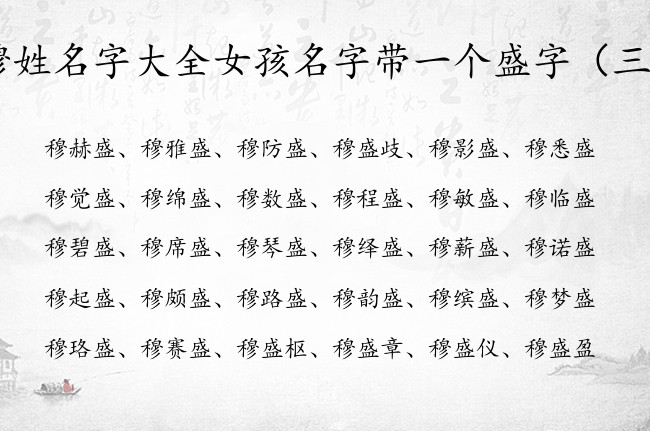 穆姓名字大全女孩名字带一个盛字（三
穆赫盛、穆雅盛、穆防盛、穆盛歧、穆影盛、穆悉盛
穆觉盛、穆绵盛、穆数盛、穆程盛、穆敏盛、穆临盛
穆碧盛、穆席盛、穆琴盛、穆绎盛、穆薪盛、穆诺盛
穆起盛、穆颇盛、穆路盛、穆韵盛、穆缤盛、穆梦盛
穆珞盛、穆赛盛、穆盛枢、穆盛章、穆盛仪、穆盛盈